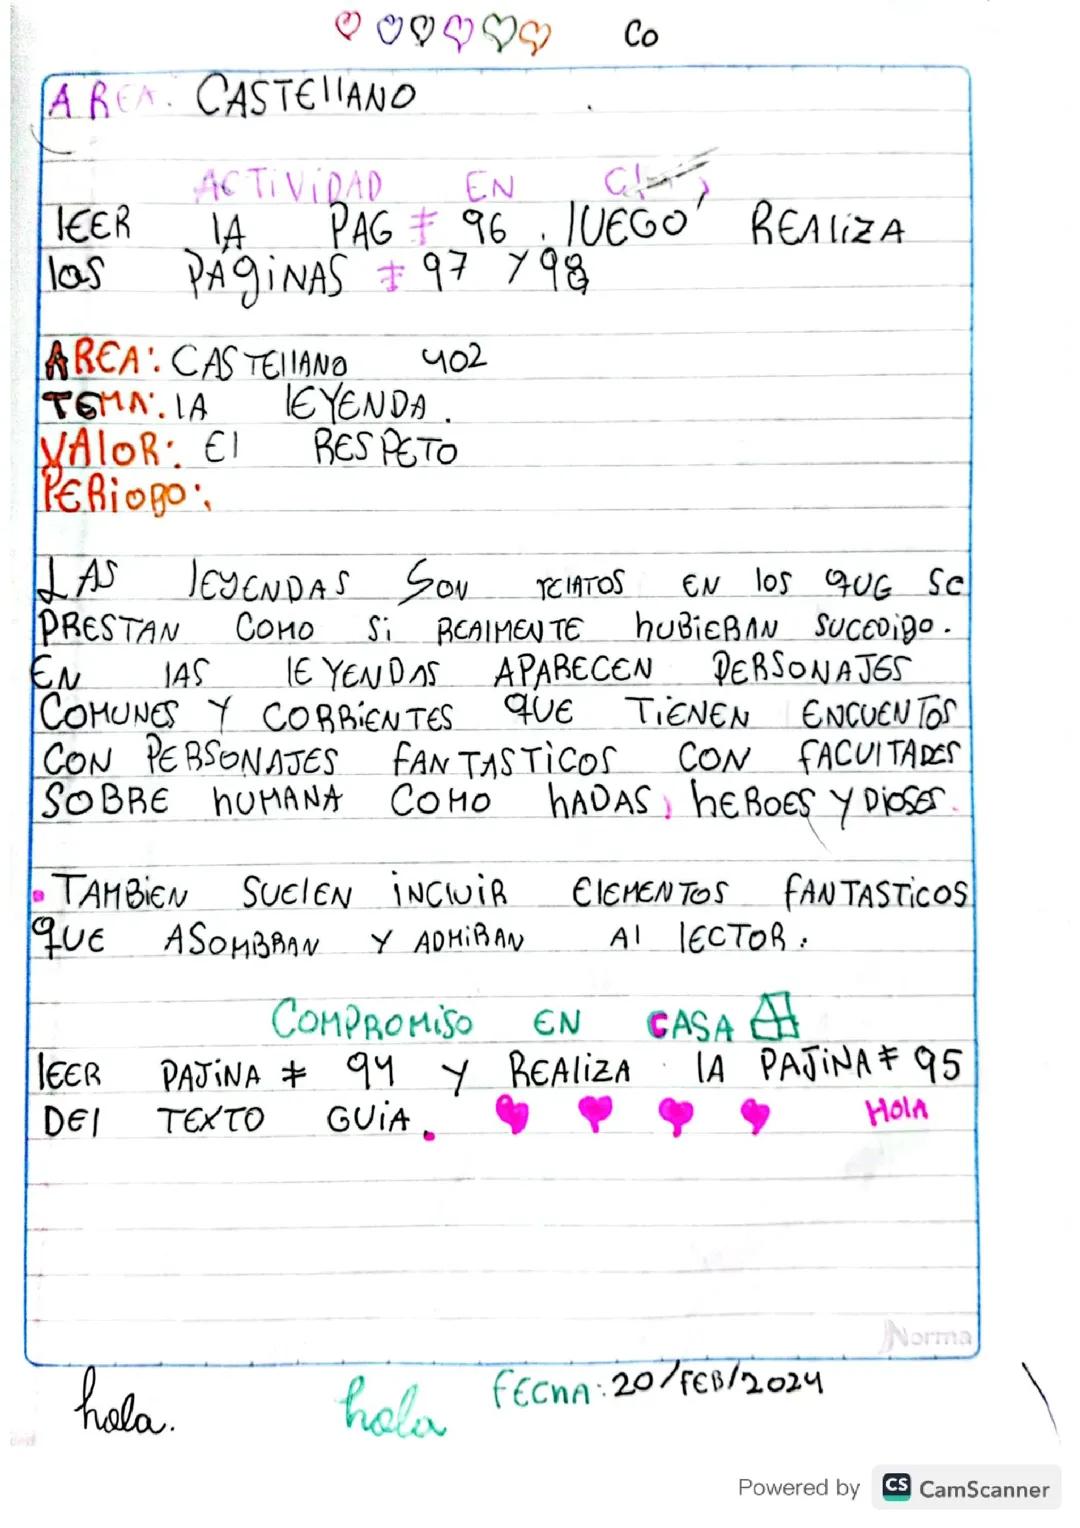 Co
AREA. CASTEllANO
ACTiViDAD EN
lEER lA PAG # 96. lUEGO REAliZA
las PAgiNAS # 97 Y 98
AREA: CASTEllANO 402
TEMA: lA lEYENDA.
VAlOR: El RESPETO
PERiODO:
LAS lEYENDAS SON RElATOS EN lOS qUE SE
PRESTAN COMO Si REAlMENTE hUBiERAN SUCEDiDO.
EN lAS lEYENDAS APARECEN PERSONAJES
COMUNES Y CORRiENTES qUE TiENEN ENCUENTOS
CON PERSONAJES fANTASTiCOS CON fACUlTADES
SOBRE hUMANA COMO hADAS, hEROES Y DiOSES.
• TAMBiEN SUElEN iNClUiR ElEMENTOS fANTASTiCOS
qUE ASOMBRAN Y ADMiRAN Al lECTOR.
COMPROMiSO EN CASA
lEER PAJiNA # 94 Y REAliZA lA PAJiNA # 95
DEl TEXTO GUiA. HOlA
Norma
hola. hola fECHA: 20/FEB/2024
Powered by CS CamScanner